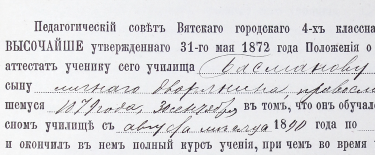 Педагогическій совѣтъ Вятскаго городскаго 4-хъ класснa
ВЫСОЧАЙШЕ утвержденнаго 31-го мая 1872 года Положенія о
аттестатъ ученику сего училища Басманову
сыну личнаго дворянина, правосл
шемуся 1879 года, въ томъ, что онъ обучалс
сномъ училищѣ съ августа мѣсяца 1890 года по
и окончилъ въ немъ полный курсъ ученія, при чемъ во время